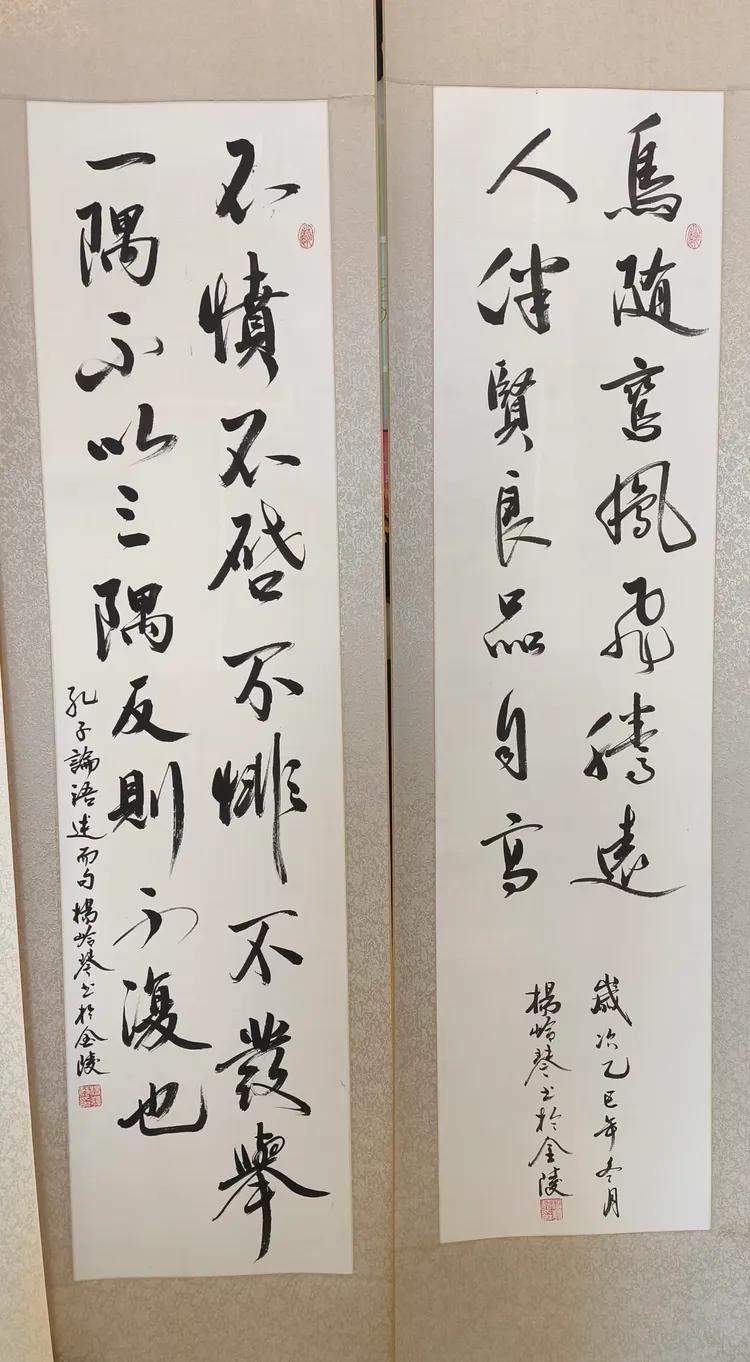 鳥随鸞鳳飛騰遠
人伴賢良品自高
歲次乙巳年冬月
楊岭琴书於金陵
不憤不啓不悱不發舉
一隅不以三隅反則不復也
孔子論語述而句楊岭琴书於金陵